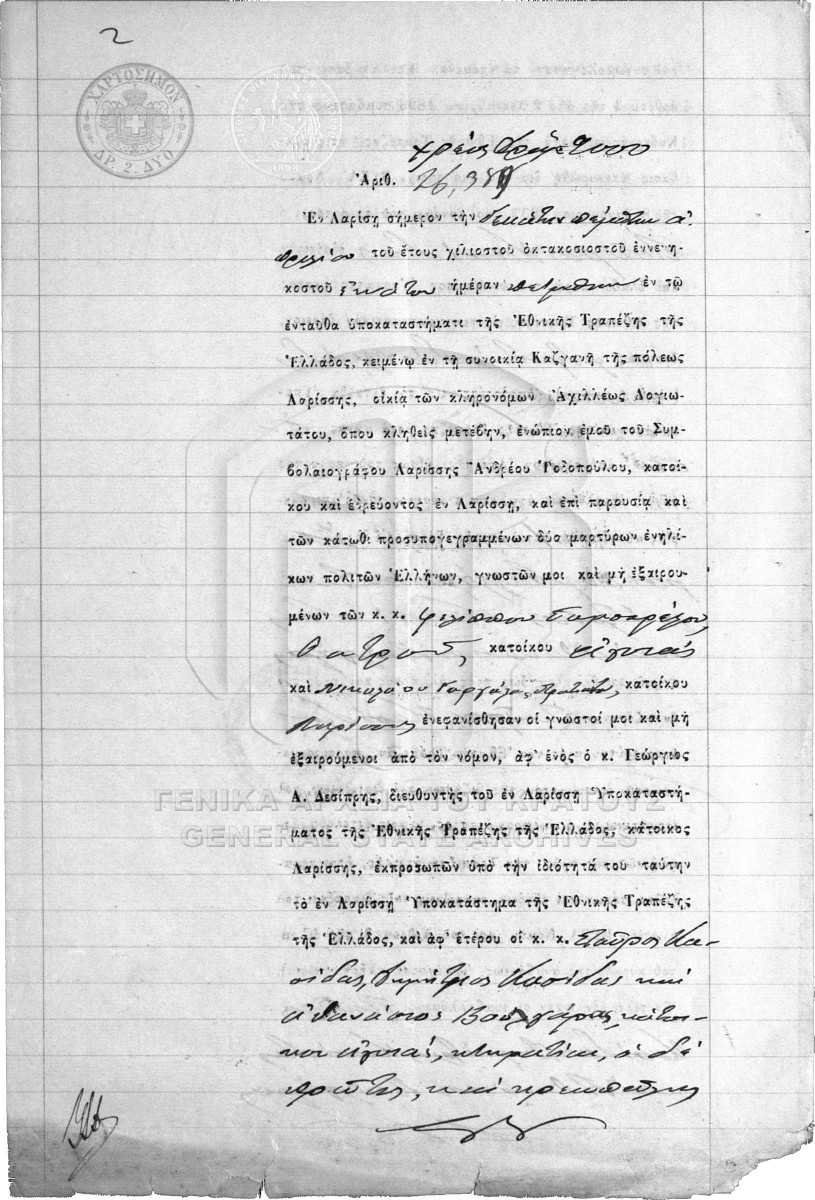 2
ΧΑΡΤΟΣΗΜΟΝ
ΔΡ. 2. ΔΥΟ
χρέος δραχ 9000
Ἀριθ. 26,359
Ἐν Λαρίσῃ σήμερον τὴν δεκάτην πέμπτην Ἀ
πριλίου τοῦ ἔτους χιλιοστοῦ ὀκτακοσιοστοῦ ἐννενη-
κοστοῦ ἐνάτου ἡμέραν πέμπτην ἐν τῷ
ἐνταῦθα ὑποκαταστήματι τῆς Ἐθνικῆς Τραπέζης τῆς
Ἑλλάδος, κειμένῳ ἐν τῇ συνοικίᾳ Καζγανῆ τῆς πόλεως
Λαρίσσης, οἰκίᾳ τῶν κληρονόμων Ἀχιλλέως Λογιω-
τάτου, ὅπου κληθεὶς μετέβην, ἐνώπιον ἐμοῦ τοῦ Συμ-
βολαιογράφου Λαρίσσης Ἀνδρέου Ῥοδοπούλου, κατοί-
κου καὶ ἑδρεύοντος ἐν Λαρίσσῃ, καὶ ἐπὶ παρουσίᾳ καὶ
τῶν κάτωθι προσυπογεγραμμένων δύο μαρτύρων ἐνηλί-
κων πολιτῶν Ἑλλήνων, γνωστῶν μοι καὶ μὴ ἐξαιρου-
μένων τῶν κ. κ. Φιλίππου Σαμσαρέλου,
ἰατροῦ, κατοίκου Ἁγυιᾶς
καὶ Νικολάου Γαργάλα, κατοίκου
Λαρίσσης ἐνεφανίσθησαν οἱ γνωστοί μοι καὶ μὴ
ἐξαιρούμενοι ἀπὸ τὸν νόμον, ἀφ' ἑνὸς ὁ κ. Γεώργιος
Α. Δεσίπρης, διευθυντὴς τοῦ ἐν Λαρίσσῃ Ὑποκαταστή-
ματος τῆς Ἐθνικῆς Τραπέζης τῆς Ἑλλάδος, κάτοικος
Λαρίσσης, ἐκπροσωπῶν ὑπὸ τὴν ἰδιότητά του ταύτην
τὸ ἐν Λαρίσσῃ Ὑποκατάστημα τῆς Ἐθνικῆς Τραπέζης
τῆς Ἑλλάδος, καὶ ἀφ' ἑτέρου οἱ κ. κ. Σταῦρος Κα-
σίδας, Δημήτριος Κασίδας καὶ
Ἀθανάσιος Βούλγαρης, κάτοι-
κοι Ἁγυιᾶς, κτηματίαι, ὁ δὲ
πρῶτος, καὶ
ΓΕΝΙΚΑ ΑΡΧΕΙΑ ΤΟΥ ΚΡΑΤΟΥΣ
GENERAL STATE ARCHIVES